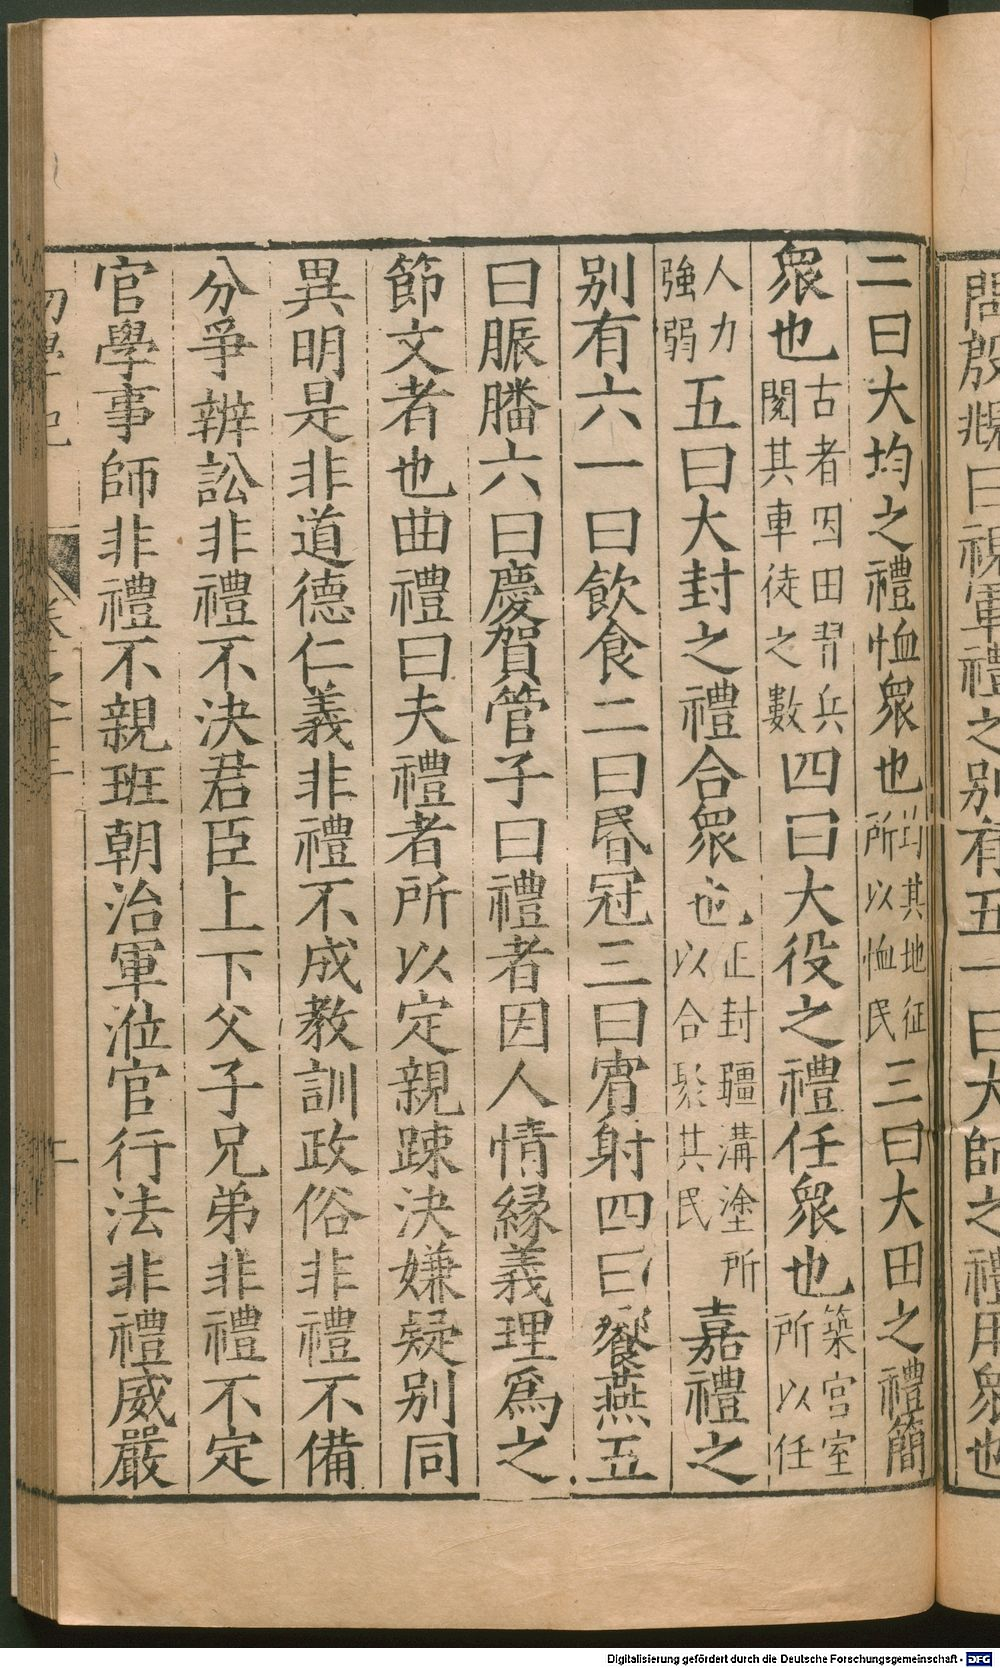 問殷眺曰視軍禮之别有五一曰大師之禮用衆也
二曰大均之禮恤衆也均其地征所以恤民三曰大田之禮簡
衆也古者因田習兵閱其車徒之數四曰大役之禮任衆也築宫室所以任
人力強弱五曰大封之禮合衆也正封疆溝塗所以合聚其民嘉禮之
别有六一曰飲食二曰昬冠三曰賓射四曰饗燕五
曰脤膰六曰慶賀管子曰禮者因人情縁義理爲之
節文者也曲禮曰夫禮者所以定親踈決嫌疑别同
異明是非道德仁義非禮不成教訓政俗非禮不備
分爭辨訟非禮不決君臣上下父子兄弟非禮不定
官學事師非禮不親班朝治軍涖官行法非禮威嚴
Digitalisierung gefördert durch die Deutsche Forschungsgemeinschaft - DFG